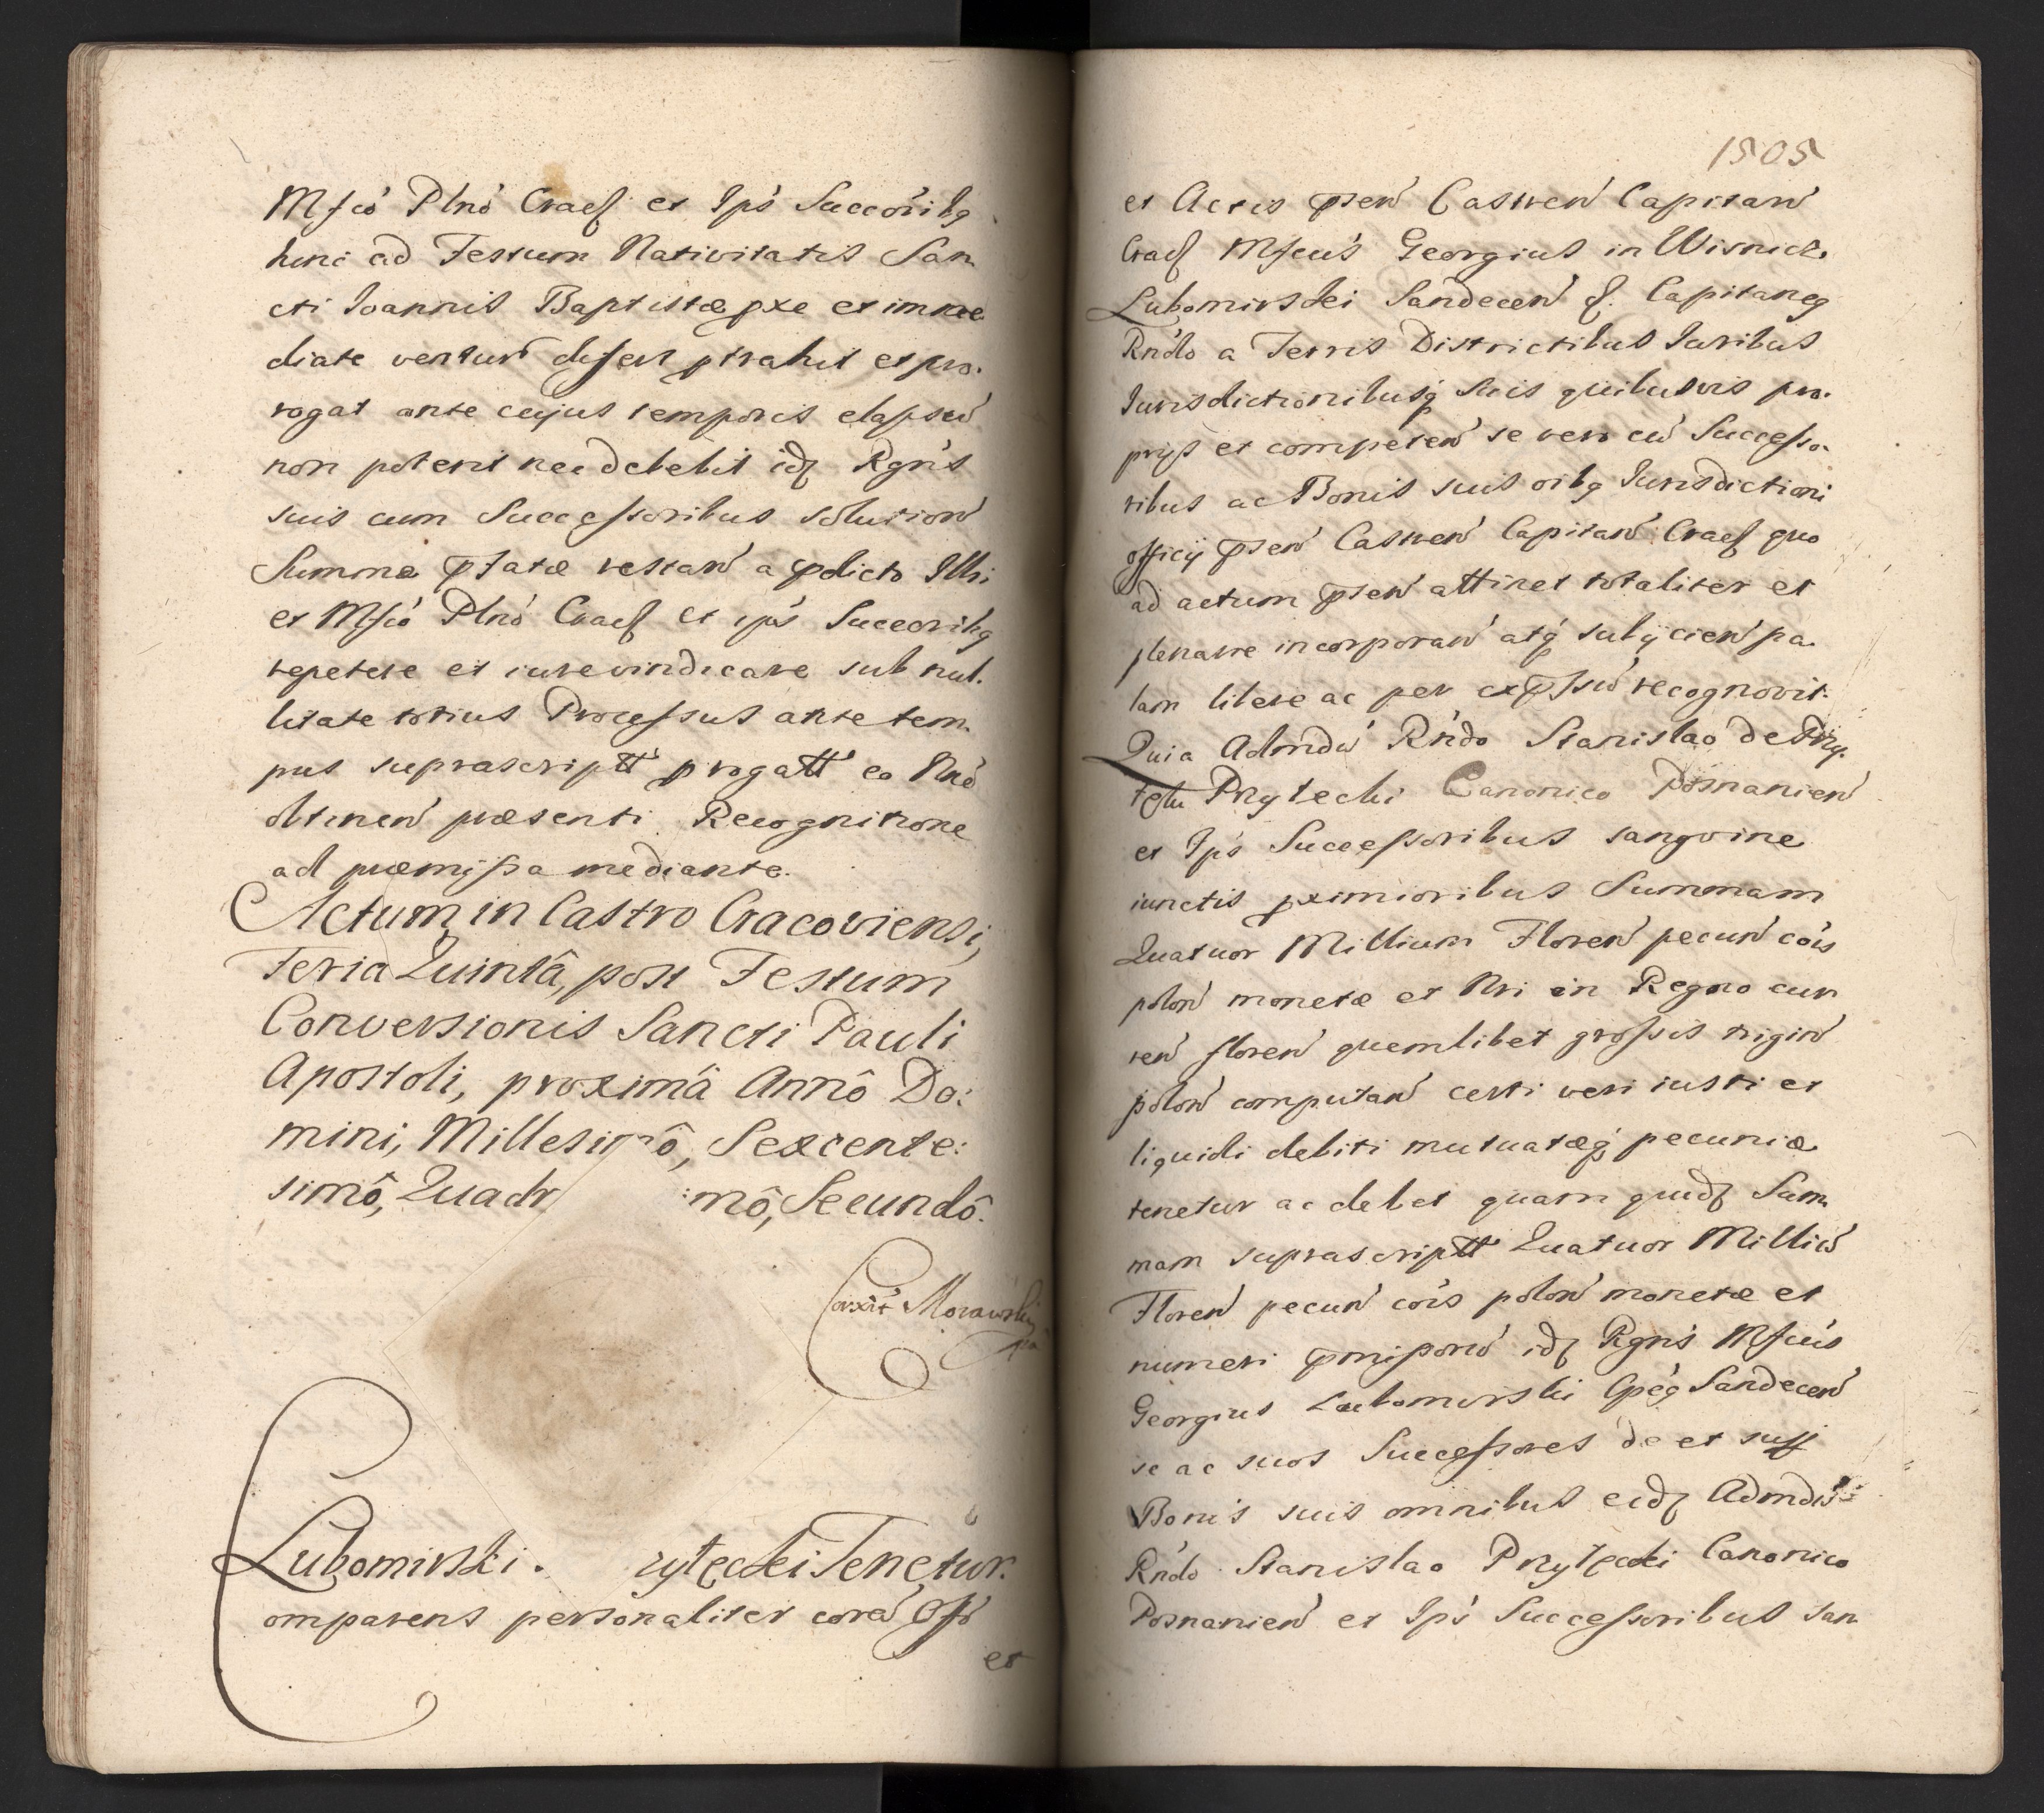 Mfcó Plnó Cracſ et Ips Succóribꝗ
hinc ad Festum Nativitatis San
cti Ioannis Baptistæ pxe et imme
diate ventur̃ defert ptrahit et pro.
rogat ante cujus temporis elapsũ
non poterit nec debebit idꝫ Rgns
suis cum Succeſsoribus solution̄
Summæ pſatæ restan̄ a pdicto Illri
et Mfcó Plnó Cracſ et ips Succoribꝗ
repetere et iure vindicare sub nul.
litate totius Proceſsus ante tem
pus suprascriptt progatt eo Nrió
obtinen̄ præsenti Recognitione
ad præmiſsa mediante.
Actum in Castro Cracoviensi,
Feria Quintâ, post Festum
Conversionis Sancti Pauli
Apostoli, proximâ Annô Do:
mini, Millesimô, Sexcente:
simô, Quadr :mô, Secundô.
Corrxit Morawski
Lubomirski. zytęcki Tenetur.
Comparens personaliter corã Offo
et
1505
et Actis pſen̄ Castren̄ Capitan̄
Cracſ Mfcus Georgius in Wisnicz
Lubomirski Sandecen̄ &. Capitaneꝗ
Rndo a Terris Districtibus Iuribus
Iurisdictionibusꝗ suis quibusvis pro.
prijs et competen̄ se vero cũ Succeſso.
ribus ac Bonis suis oibꝗ Iurisdictioni
officij pſen̄ Castren̄ Capitan̄ Cracſ quo
ad actum pſen̄ attinet totaliter et
plenarie incorporan̄ atꝗ subijcien̄ pa.
lam libere ac per expſsũ recognovit.
Quia Admdũ Rndo Stanislao de Przy.
tyk Przytecki Canonico Posnanien̄
et Ips Succeſsoribus sangvine
iunctis pximioribus Summam
Quatuor Millium Floren̄ pecun̄ cóis
polon̄ monetæ et Nri in Regno cur
ren̄ floren̄ quemlibet groſsis trigin̄
polon̄ computan̄ certi veri iusti et
liquidi debiti mutuatæꝗ pecuniæ
tenetur ac debet quam quidꝫ Sum
mam suprascriptt Quatuor Milliũ
Floren̄ pecun̄ cóis polon̄ monetæ et
numeri pmiſsorũ idꝫ Rgns Mfcus
Georgius Lubomirski Cpeꝗ Sandecen̄
se ac suos Succeſsores de et supr
Bonis suis omnibus eidꝫ Admdũ
Rndo Stanislao Przytęcki Canonico
Posnanien̄ et Ips Succeſsoribus san